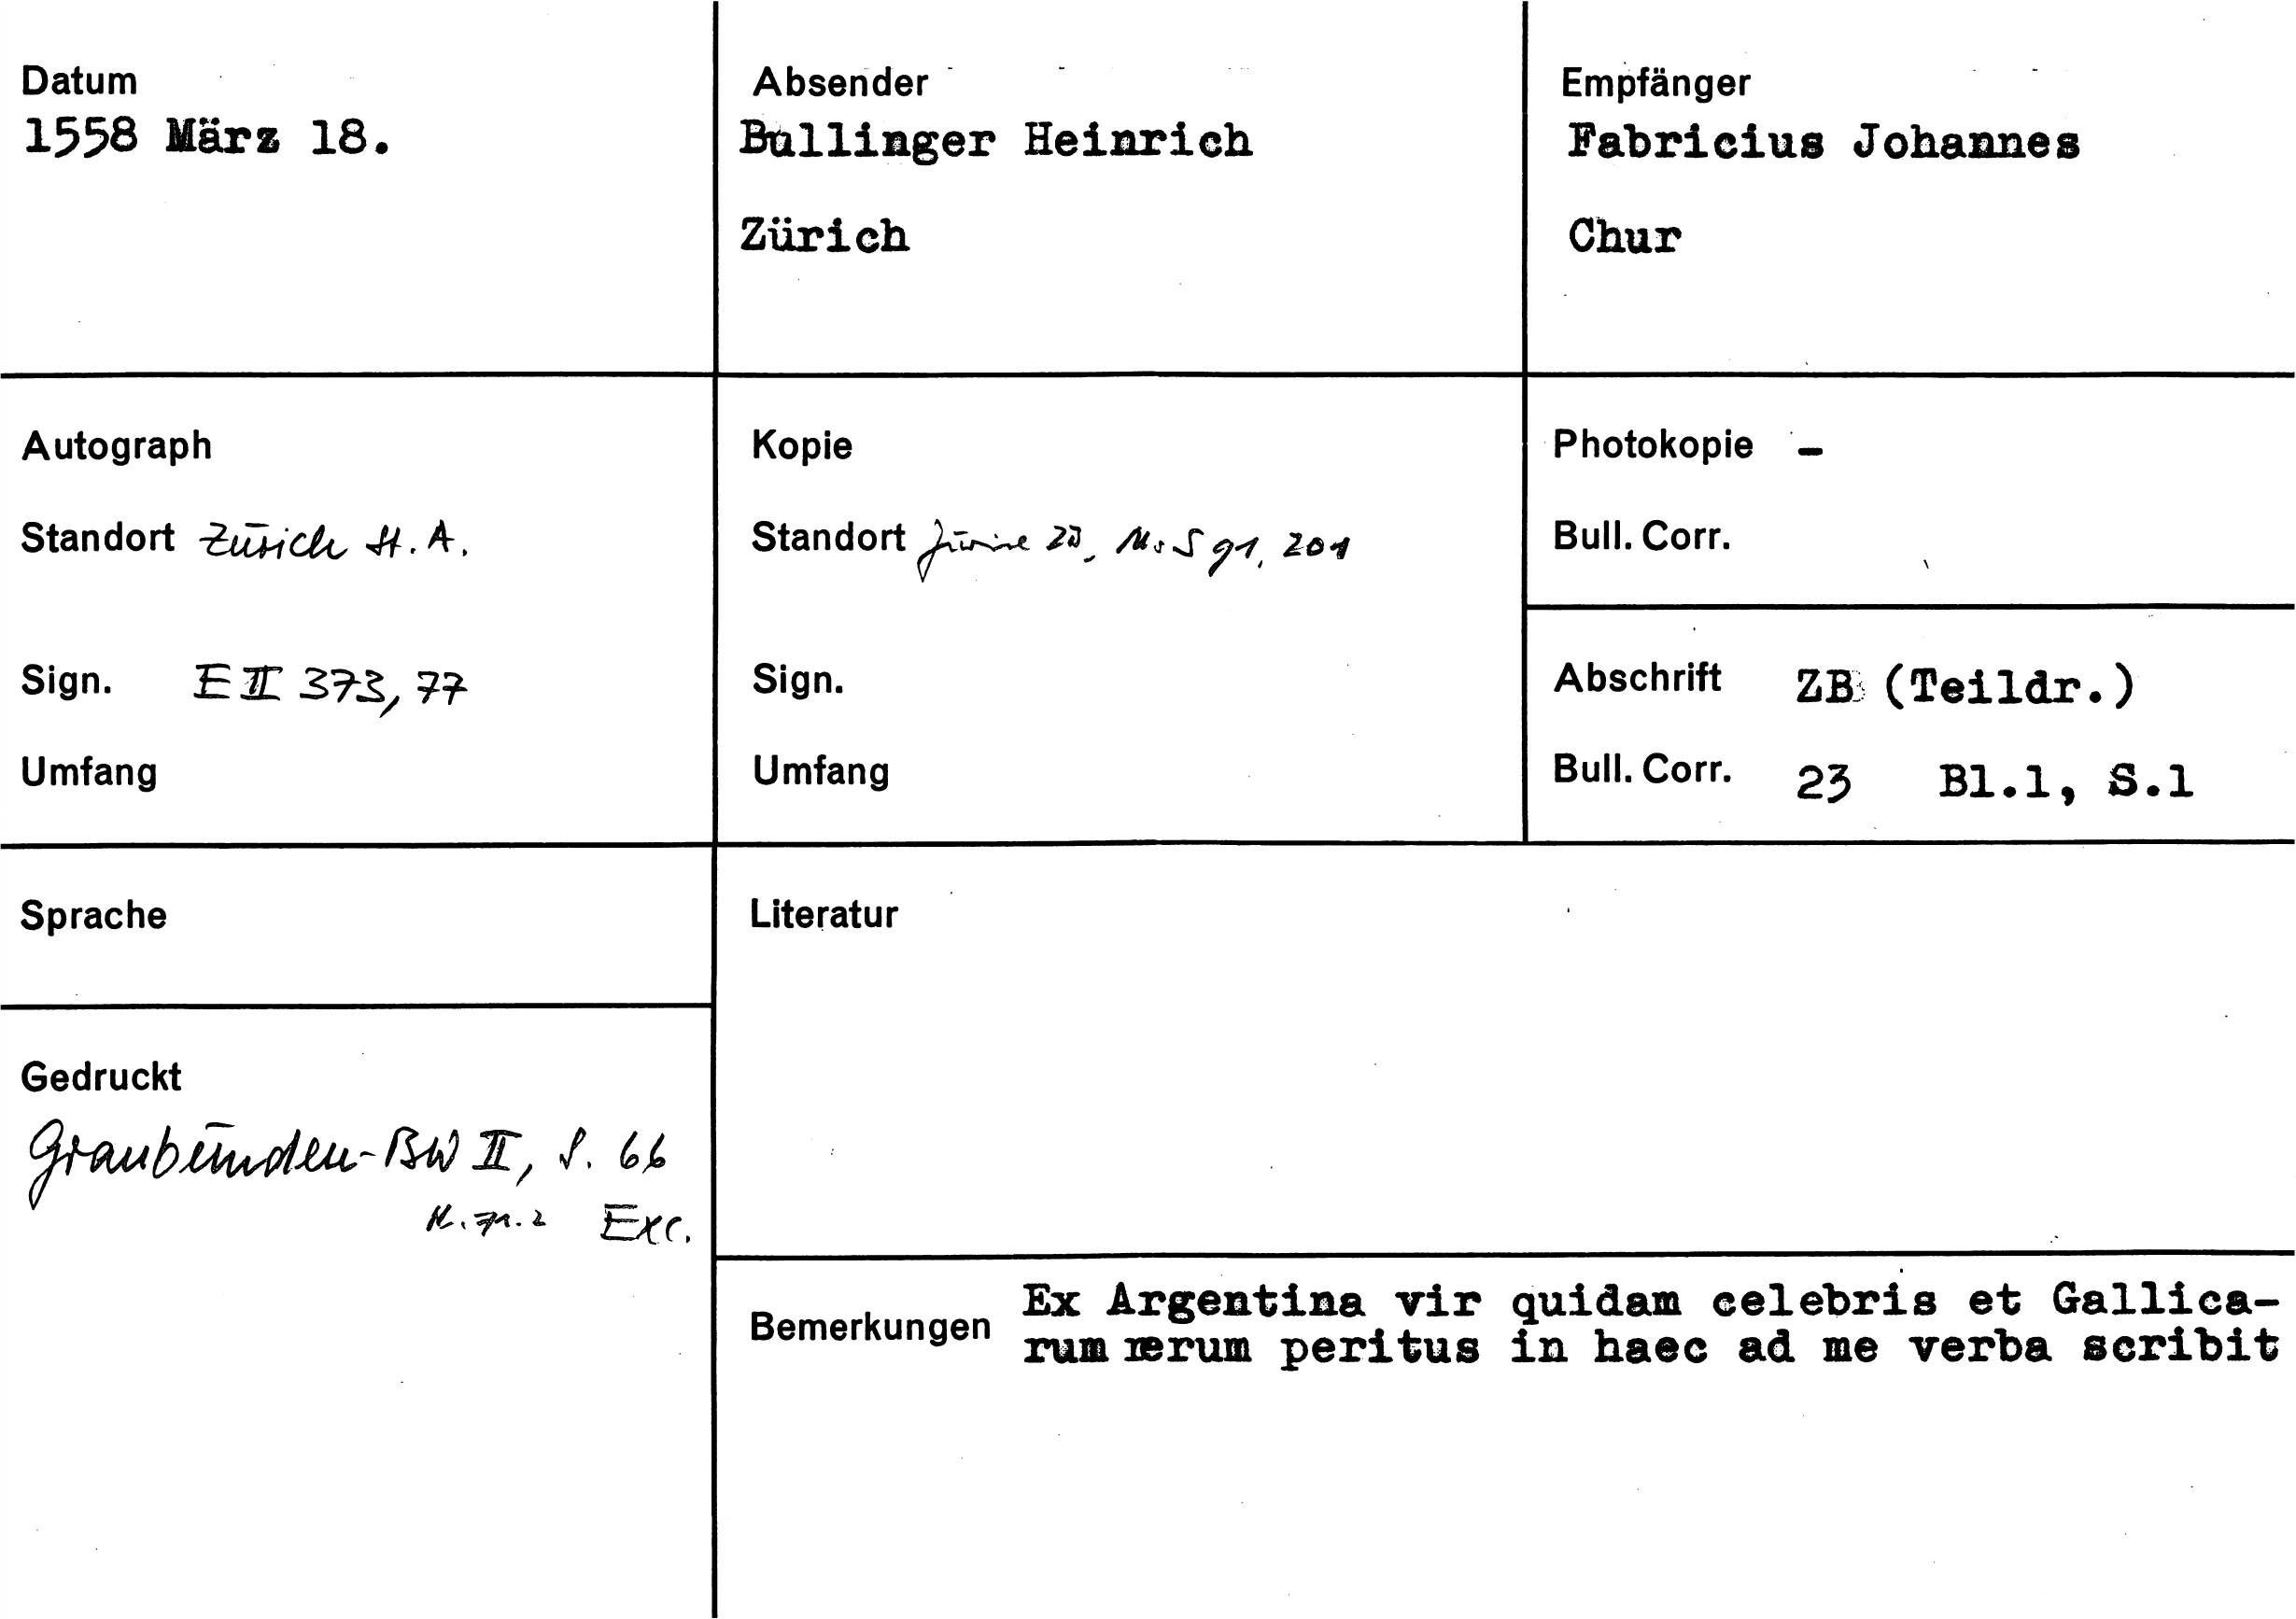 Datum
1558 März 18.
Absender
Bullinger Heinrich
Zürich
Empfänger
Fabricius Johannes
Chur
Autograph
Standort Zürich St. A.
Sign. E II 373, 77
Umfang
Kopie
Standort Zürich ZB, Ms S 91, 201
Sign.
Umfang
Photokopie -
Bull. Corr.
Abschrift ZB (Teildr.)
Bull. Corr. 23 Bl.1, S.1
Sprache
Gedruckt
Graubünden-BW II, S. 66
N. 71.2 Exc.
Literatur
Bemerkungen Ex Argentina vir quidam celebris et Gallica-
rum rerum peritus in haec ad me verba scribit